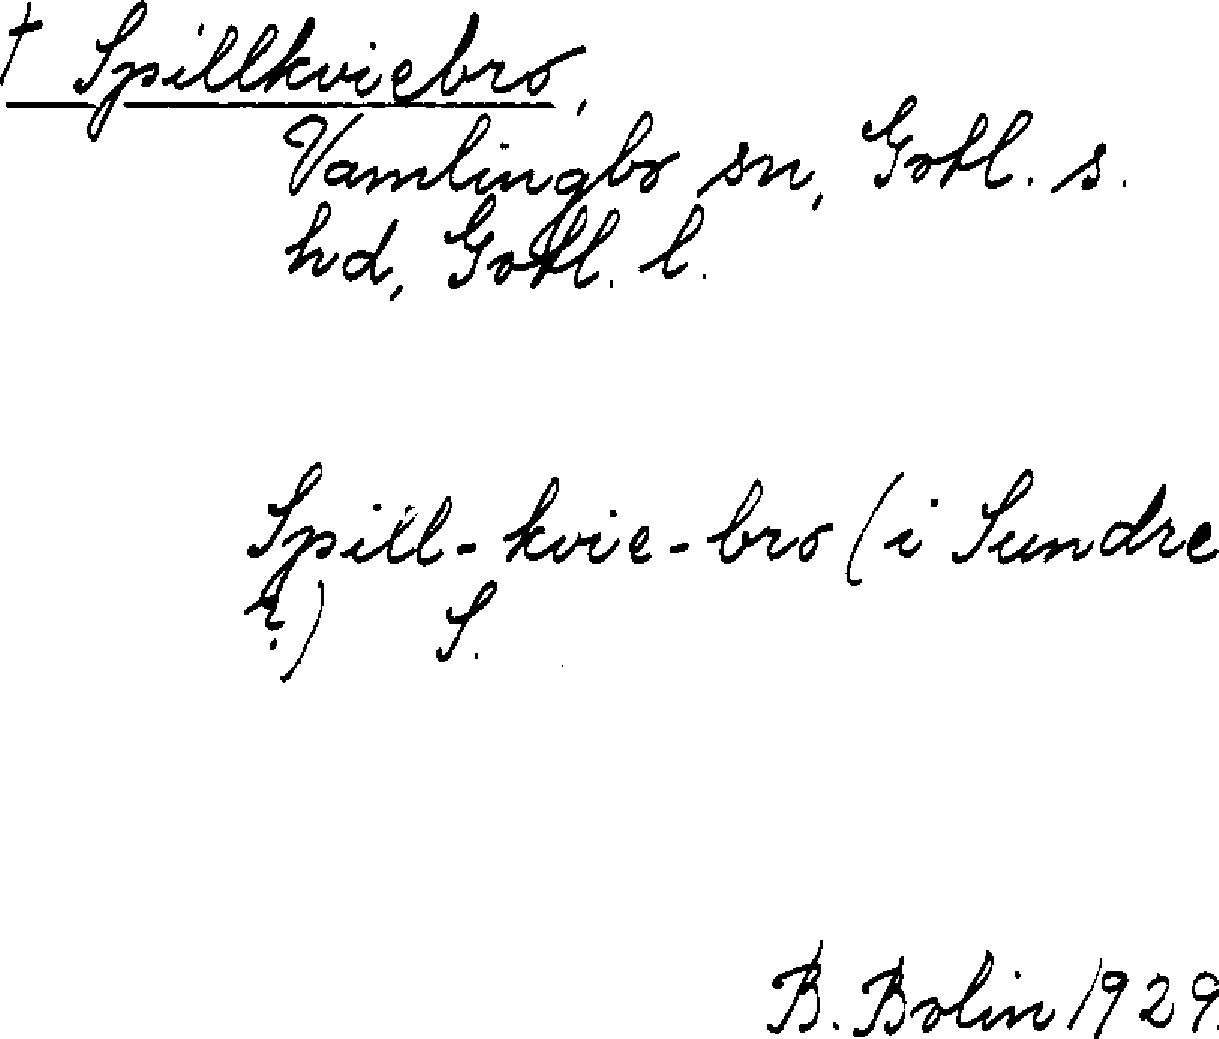 † Spillkviebro,
Vamlingbo sn, Gotl. s.
hd, Gotl. l.
Spill-kvie-bro (i Sundre
?) S.
B. Bolin 1929.